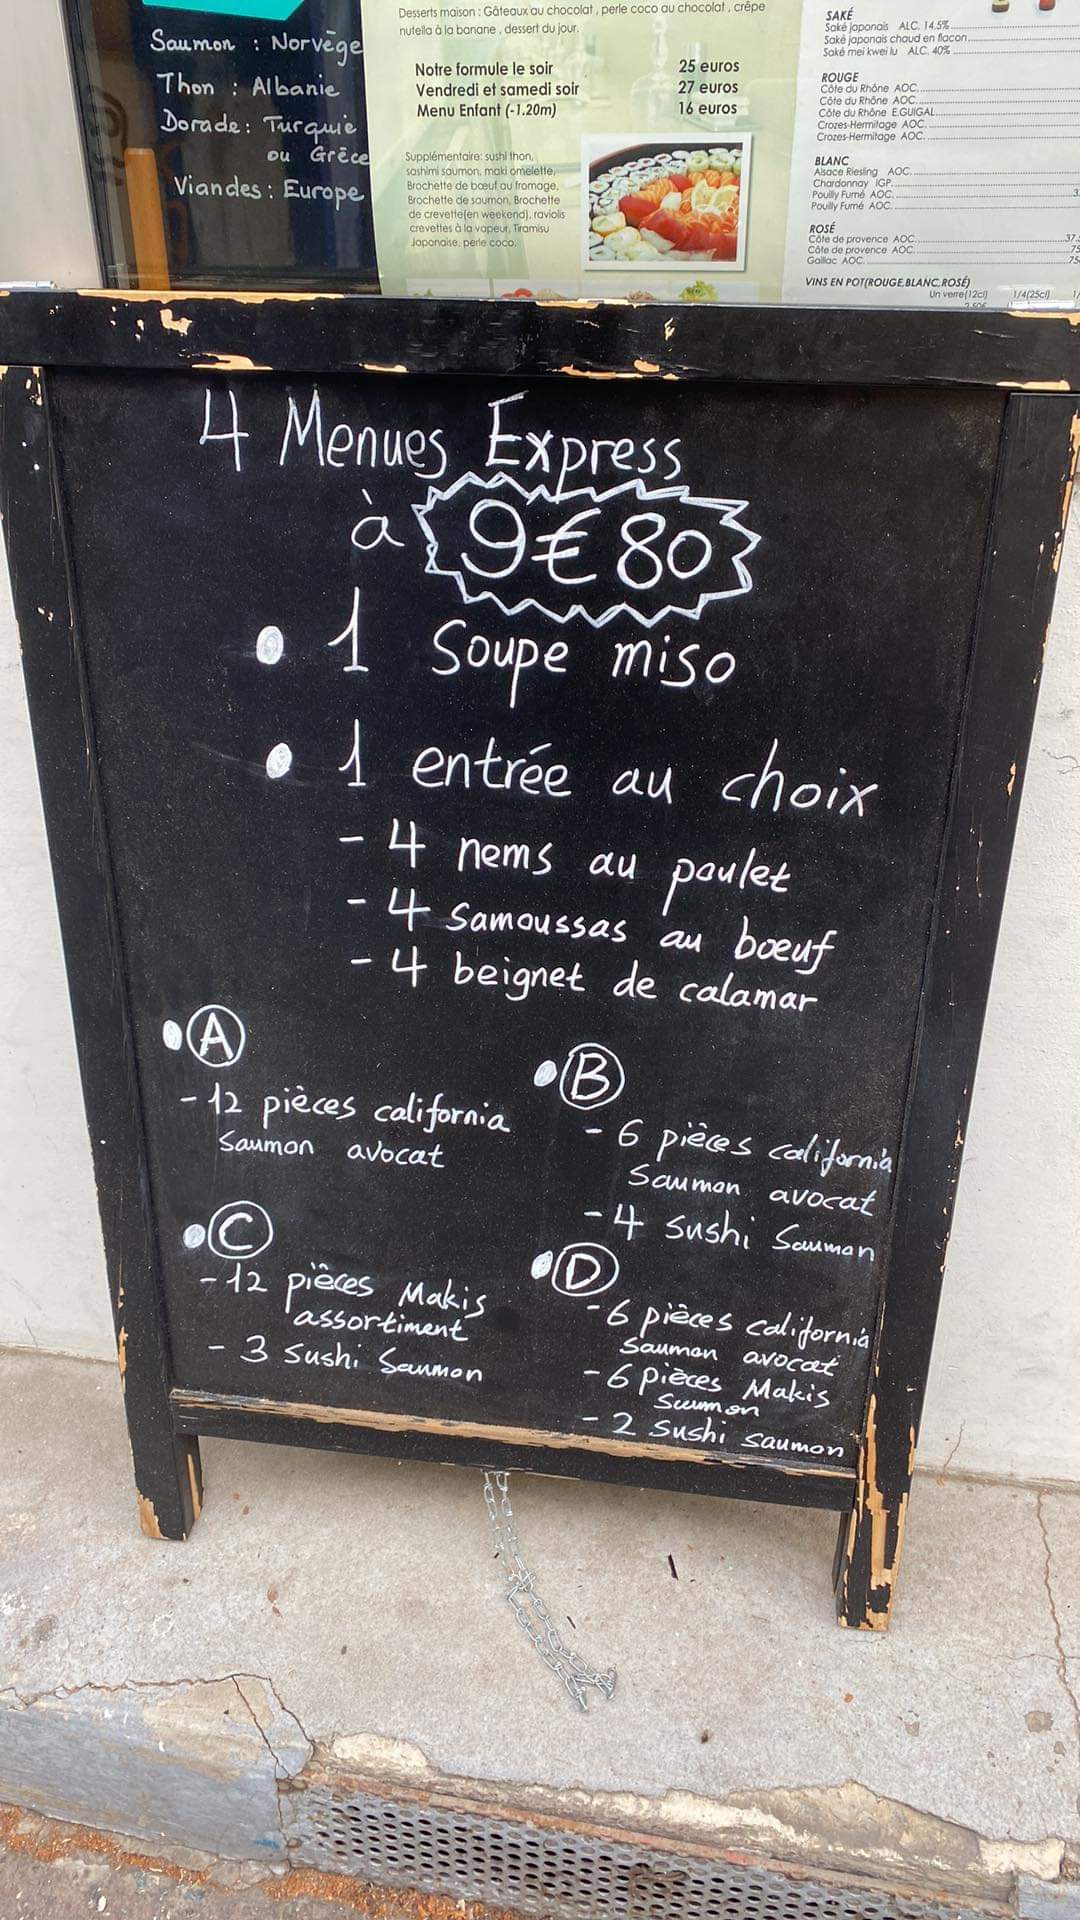 Saumon : Norvège
Thon : Albanie
Dorade : Turquie
ou Grèce
Viandes : Europe
Desserts maison : Gâteaux au chocolat , perle coco au chocolat , crêpe
nutella à la banane , dessert du jour.
Notre formule le soir 25 euros
Vendredi et samedi soir 27 euros
Menu Enfant (-1.20m) 16 euros
Supplémentaire: sushi thon,
sashimi saumon, maki omelette,
Brochette de bœuf au fromage,
Brochette de saumon, Brochette
de crevette(en weekend), raviolis
crevettes à la vapeur, Tiramisu
Japonaise, perle coco.
SAKÉ
Saké japonais ALC. 14.5%
Saké japonais chaud en flacon
Saké mei kwei lu ALC. 40%
ROUGE
Côte du Rhône AOC.
Côte du Rhône AOC.
Côte du Rhône E.GUIGAL
Crozes-Hermitage AOC.
Crozes-Hermitage AOC.
BLANC
Alsace Riesling AOC.
Chardonnay IGP.
Pouilly Fumé AOC.
Pouilly Fumé AOC.
ROSÉ
Côte de provence AOC.
Côte de provence AOC.
Gaillac AOC.
VINS EN POT(ROUGE,BLANC,ROSÉ)
Un verre(12cl) 1/4(25cl)
4 Menues Express
à 9€80
1 Soupe miso
1 entrée au choix
- 4 nems au poulet
- 4 samoussas au bœuf
- 4 beignet de calamar
A
- 12 pièces california
Saumon avocat
B
- 6 pièces california
Saumon avocat
- 4 sushi Saumon
C
- 12 pièces Makis
assortiment
- 3 sushi Saumon
D
- 6 pièces california
Saumon avocat
- 6 pièces Makis
Saumon
- 2 sushi saumon